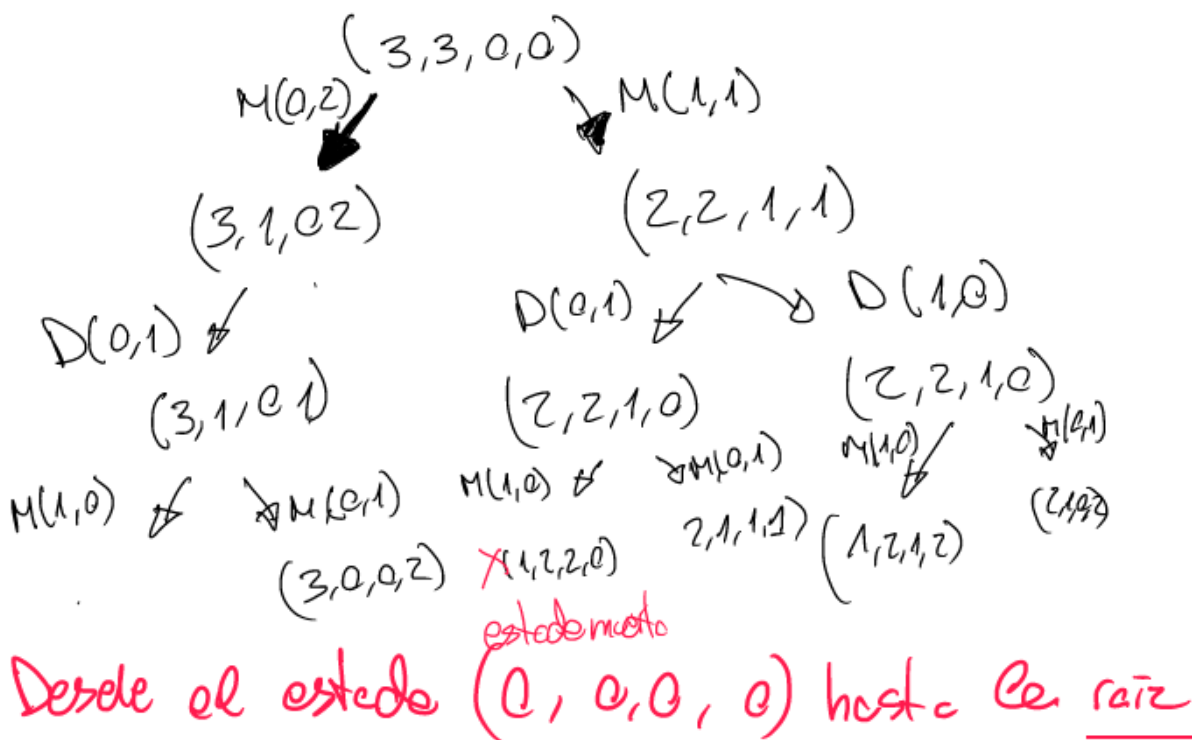 (3,3,0,0)
M(0,2) M(1,1)
(3,1,02) (2,2,1,1)
D(0,1) D(0,1) D(1,0)
(3,1,01) (2,2,1,0) (2,2,1,0)
M(1,0) M(0,1) M(1,0) M(0,1) M(1,0) M(0,1)
(3,0,0,2) X(1,2,2,0) 2,1,1,1) (1,2,1,2)
Desde el estado (0,0,0,0) hasta la raíz